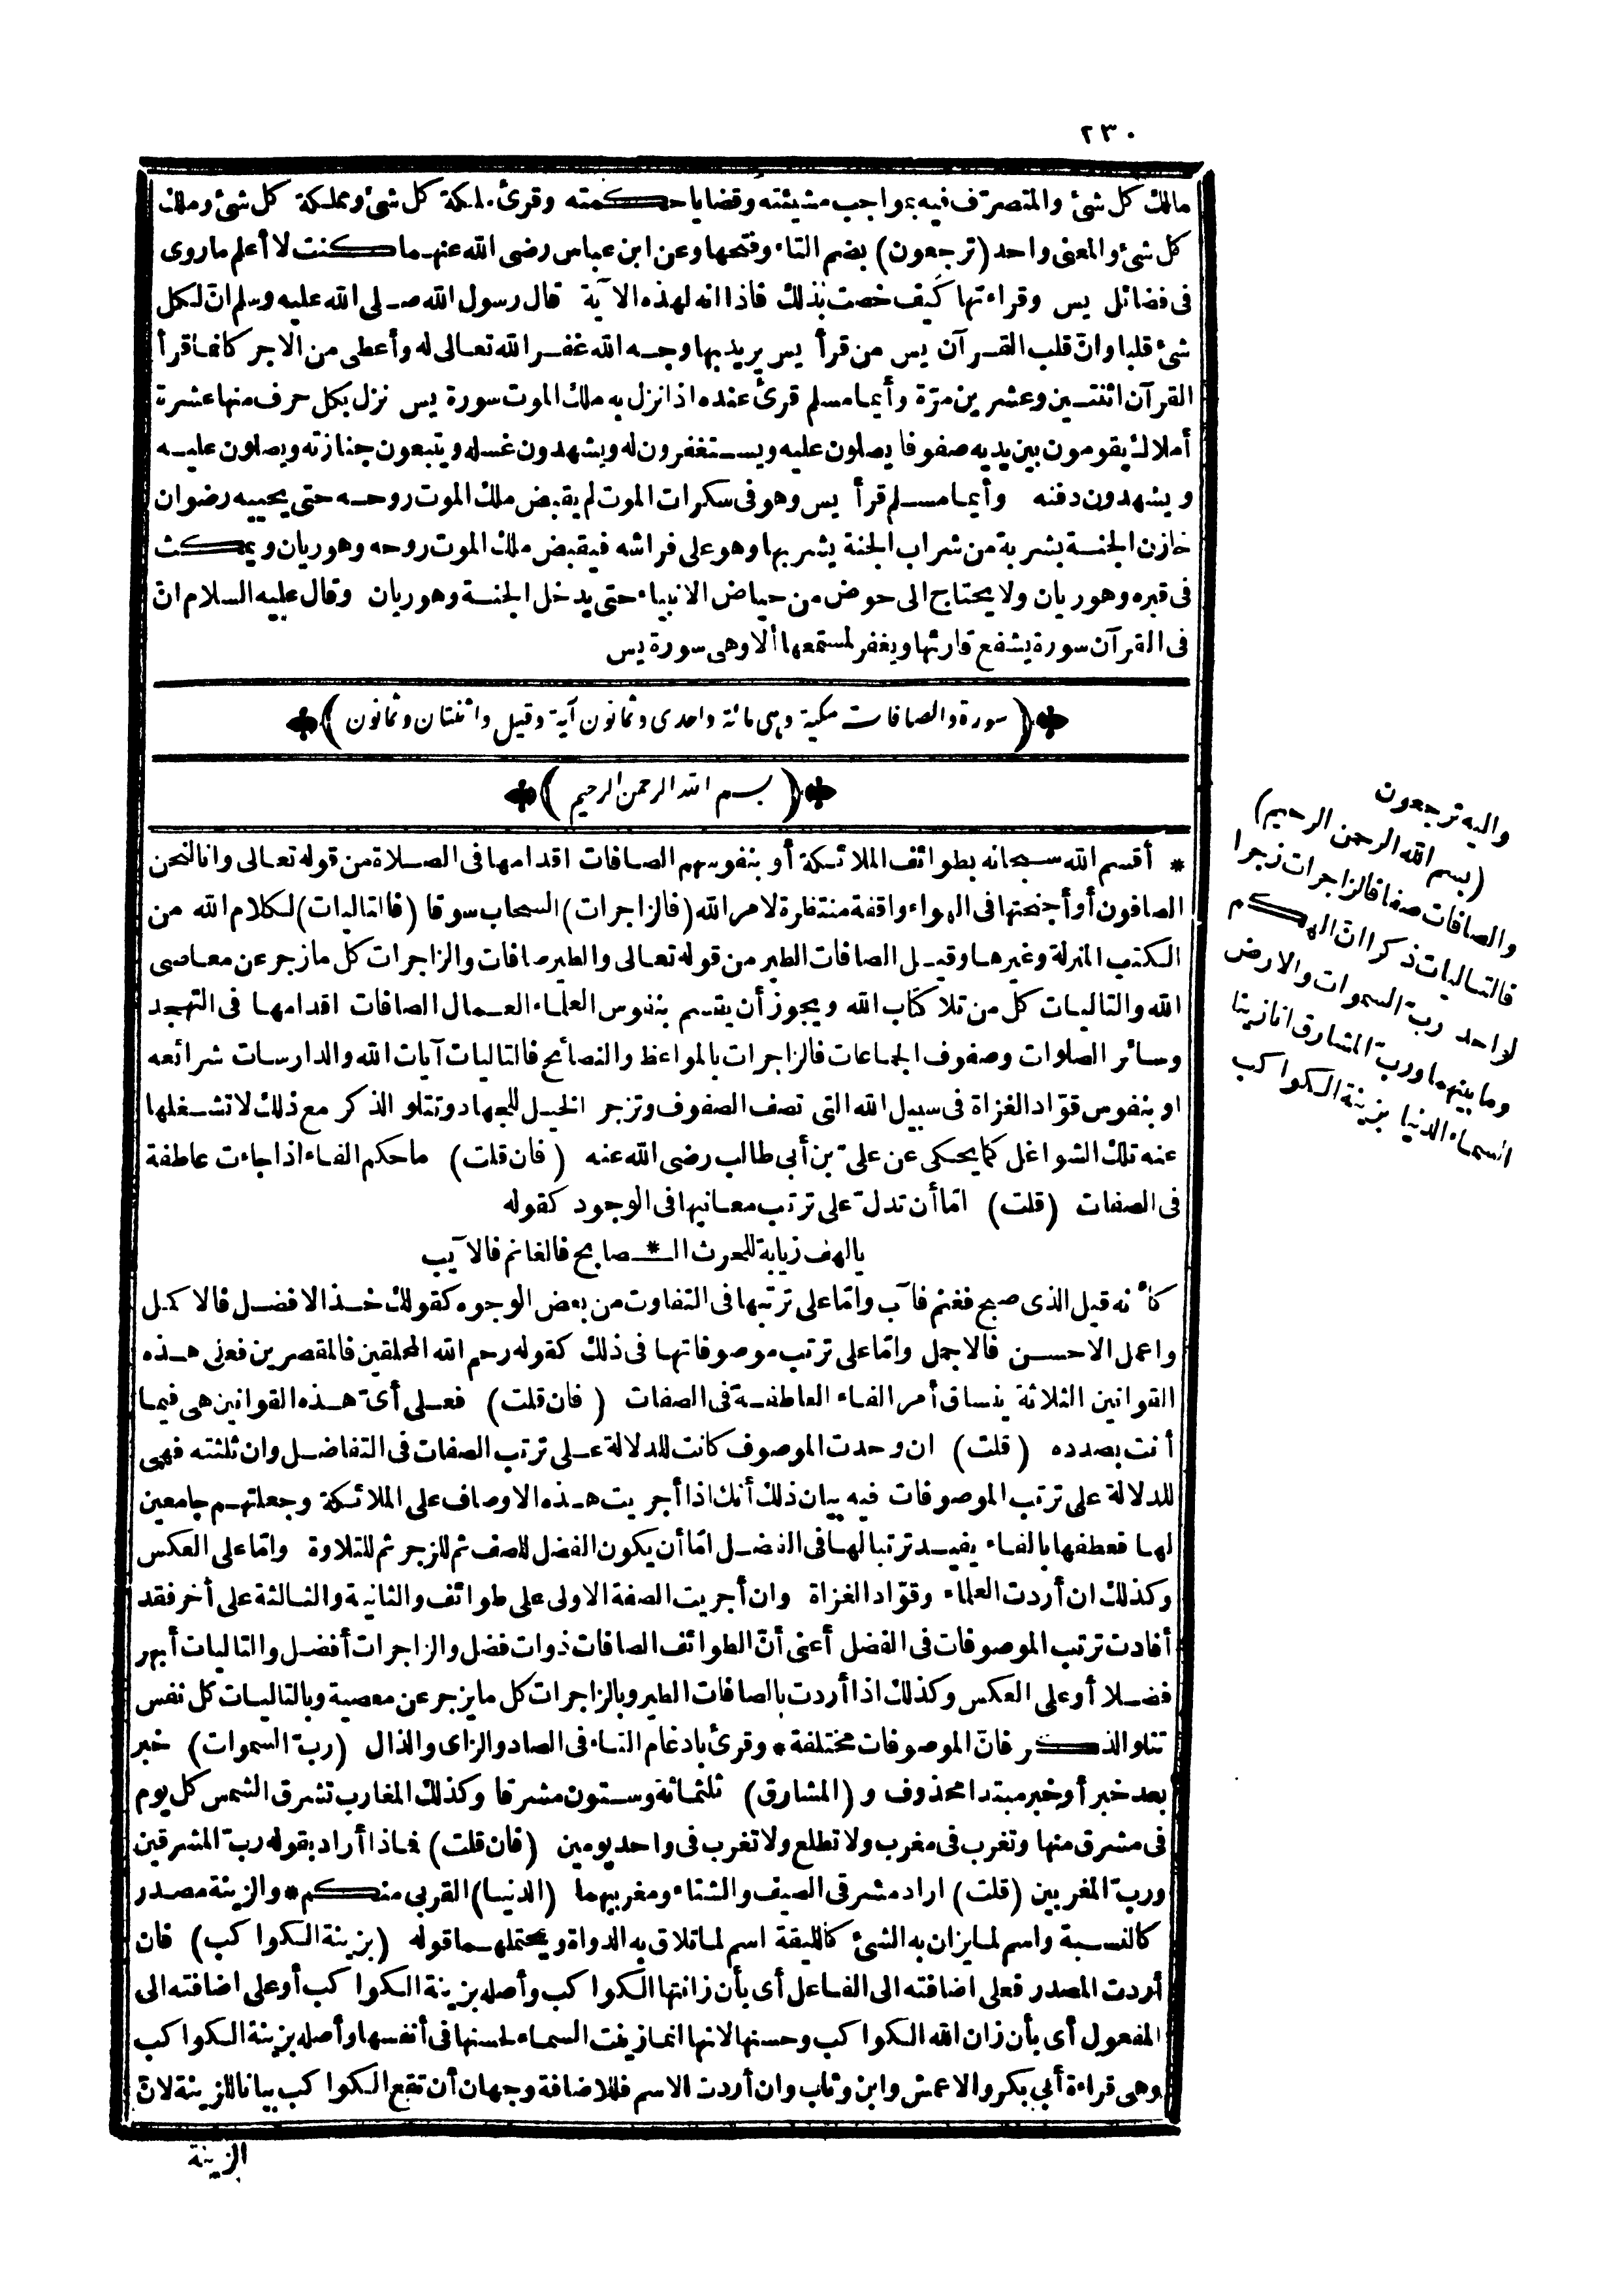 ٢٣٠
مالك كل شئ والمتصرّف فيه بمواجب مشيئته وقضايا حكمته وقرئ ملكة كل شئ ومملكة كل شئ وملك
كل شئ والمعنى واحد (ترجعون) بضم التاء وفتحها وعن ابن عباس رضى الله عنهما كنت لا أعلم ما روى
فى فضائل يس وقراءتها كيف خصت بذلك فاذا انه لهذه الآية قال رسول الله صلى الله عليه وسلم انّ لكل
شئ قلبا وانّ قلب القرآن يس من قرأ يس يريد بها وجه الله غفر الله تعالى له وأعطى من الاجر كانما قرأ
القرآن اثنتين وعشرين مرّة وأيما مسلم قرئ عنده اذا نزل به ملك الموت سورة يس نزل بكل حرف منها عشرة
أملاك يقومون بين يديه صفوفا يصلون عليه ويستغفرون له ويشهدون غسله ويتبعون جنازته ويصلون عليه
ويشهدون دفنه وأيما مسلم قرأ يس وهو فى سكرات الموت لم يقبض ملك الموت روحه حتى يحييه رضوان
خازن الجنة بشربة من شراب الجنة يشربها وهو على فراشه فيقبض ملك الموت روحه وهو ريان ويمكث
فى قبره وهو ريان ولا يحتاج الى حوض من حياض الانبياء حتى يدخل الجنة وهو ريان وقال عليه السلام انّ
فى القرآن سورة يشفع قارئها ويغفر لمستمعها ألا وهى سورة يس
(سورة والصافات مكية وهى مائة واحدى وثمانون آية وقيل واثنتان وثمانون)
(بسم الله الرحمن الرحيم)
* أقسم الله سبحانه بطوائف الملائكة أو بنفوسهم الصافات اقدامها فى الصلاة من قوله تعالى وانا لنحن
الصافون أو أجنحتها فى الهواء واقفة منتظرة لامر الله (فالزاجرات) السحاب سوقا (فالتاليات) لكلام الله من
الكتب المنزلة وغيرها وقيل الصافات الطير من قوله تعالى والطير صافات والزاجرات كل ما زجر عن معاصى
الله والتاليات كل من تلا كتاب الله ويجوز أن يقسم بنفوس العلماء العمال الصافات اقدامها فى التهجد
وسائر الصلوات وصفوف الجماعات فالزاجرات بالمواعظ والنصائح فالتاليات آيات الله والدارسات شرائعه
او بنفوس قوّاد الغزاة فى سبيل الله التى تصف الصفوف وتزجر الخيل للجهاد وتتلو الذكر مع ذلك لا تشغلها
عنه تلك الشواغل كما يحكى عن علىّ بن أبى طالب رضى الله عنه (فان قلت) ما حكم الفاء اذا جاءت عاطفة
فى الصفات (قلت) امّا أن تدلّ على ترتب معانيها فى الوجود كقوله
يا لهف زيابة للحرث الـ * ـصابح فالغانم فالآيب
كأنه قيل الذى صبح فغنم فآب وامّا على ترتبها فى التفاوت من بعض الوجوه كقولك خذ الافضل فالاكمل
واعمل الاحسن فالاجمل وامّا على ترتب موصوفاتها فى ذلك كقوله رحم الله المحلقين فالمقصرين فعلى هذه
القوانين الثلاثة ينساق أمر الفاء العاطفة فى الصفات (فان قلت) فعلى أىّ هذه القوانين هى فيما
أنت بصدده (قلت) ان وحدت الموصوف كانت للدلالة على ترتب الصفات فى التفاضل وان ثلثته فهى
للدلالة على ترتب الموصوفات فيه بيان ذلك أنك اذا أجريت هذه الاوصاف على الملائكة وجعلتهم جامعين
لها فعطفها بالفاء يفيد ترتبا لها فى الفضل امّا أن يكون الفضل للصف ثم للزجر ثم للتلاوة وامّا على العكس
وكذلك ان أردت العلماء وقوّاد الغزاة وان أجريت الصفة الاولى على طوائف والثانية والثالثة على أخر فقد
أفادت ترتب الموصوفات فى الفضل أعنى أنّ الطوائف الصافات ذوات فضل والزاجرات أفضل والتاليات أبهر
فضلا أو على العكس وكذلك اذا أردت بالصافات الطير وبالزاجرات كل ما يزجر عن معصية وبالتاليات كل نفس
تتلو الذكر فانّ الموصوفات مختلفة * وقرئ بادغام التاء فى الصاد والزاى والذال (ربّ السموات) خبر
بعد خبر أو خبر مبتدا محذوف و (المشارق) ثلثمائة وستون مشرقا وكذلك المغارب تشرق الشمس كل يوم
فى مشرق منها وتغرب فى مغرب ولا تطلع ولا تغرب فى واحد يومين (فان قلت) فماذا أراد بقوله ربّ المشرقين
وربّ المغربين (قلت) اراد مشرقى الصيف والشتاء ومغربيهما (الدنيا) القربى منكم * والزينة مصدر
كالنسبة واسم لما يزان به الشئ كالليقة اسم لما تلاق به الدواة ويحتملهما قوله (بزينة الكواكب) فان
أردت المصدر فعلى اضافته الى الفاعل أى بأن زانتها الكواكب وأصله بزينة الكواكب أو على اضافته الى
المفعول أى بأن زان الله الكواكب وحسنها لانها انما زينت السماء لحسنها فى أنفسها وأصله بزينة الكواكب
وهى قراءة أبى بكر والاعمش وابن وثاب وان أردت الاسم فللاضافة وجهان أن تقع الكواكب بيانا للزينة لانّ
الزينة
واليه ترجعون
(بسم الله الرحمن الرحيم)
والصافات صفا فالزاجرات زجرا
فالتاليات ذكرا انّ الهكم
لواحد ربّ السموات والارض
وما بينهما وربّ المشارق انا زينا
السماء الدنيا بزينة الكواكب